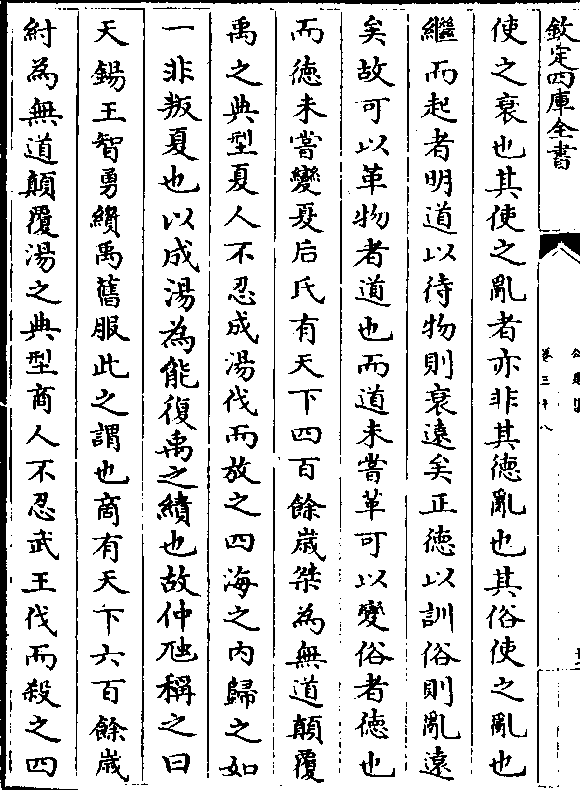 欽定四庫全書
卷三十八
使之衰也其使之亂者亦非其徳亂也其俗使之亂也
繼而起者明道以待物則衰逺矣正徳以訓俗則亂逺
矣故可以革物者道也而道未嘗革可以變俗者徳也
而徳未嘗變夏后氏有天下四百餘嵗桀為無道顛覆
禹之典型夏人不忍成湯伐而放之四海之内歸之如
一非叛夏也以成湯為能復禹之績也故仲虺稱之曰
天錫王智勇纘禹舊服此之謂也商有天下六百餘嵗
紂為無道顛覆湯之典型商人不忍武王伐而殺之四